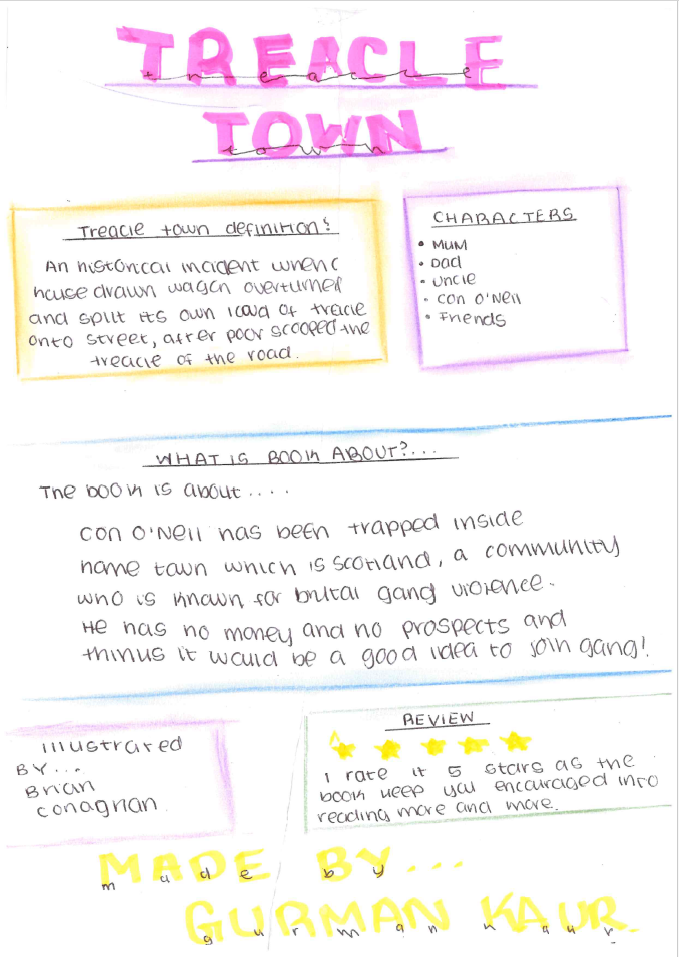 TREACLE
treacle
TOWN
town
Treacle town definition!
An historical incident when
house drawn wagen overturned
and spilt its own load of treacle
onto street, after poor scooped the
treacle of the road.
CHARACTERS
• MUM
• Dad
• uncle
• con O'Neil
• Friends
WHAT IS BOOK ABOUT?...
The book is about....
con O'Neil has been trapped inside
home town which is scotland, a community
who is known for brutal gang violence.
He has no money and no prospects and
thinks it would be a good idea to join gang!.
REVIEW
I rate it 5 stars as the
book keep you encouraged into
reading more and more.
illustrated
BY...
Brian
conaghan
MADE BY...
made by
GURMAN KAUR.
gurman kaur.